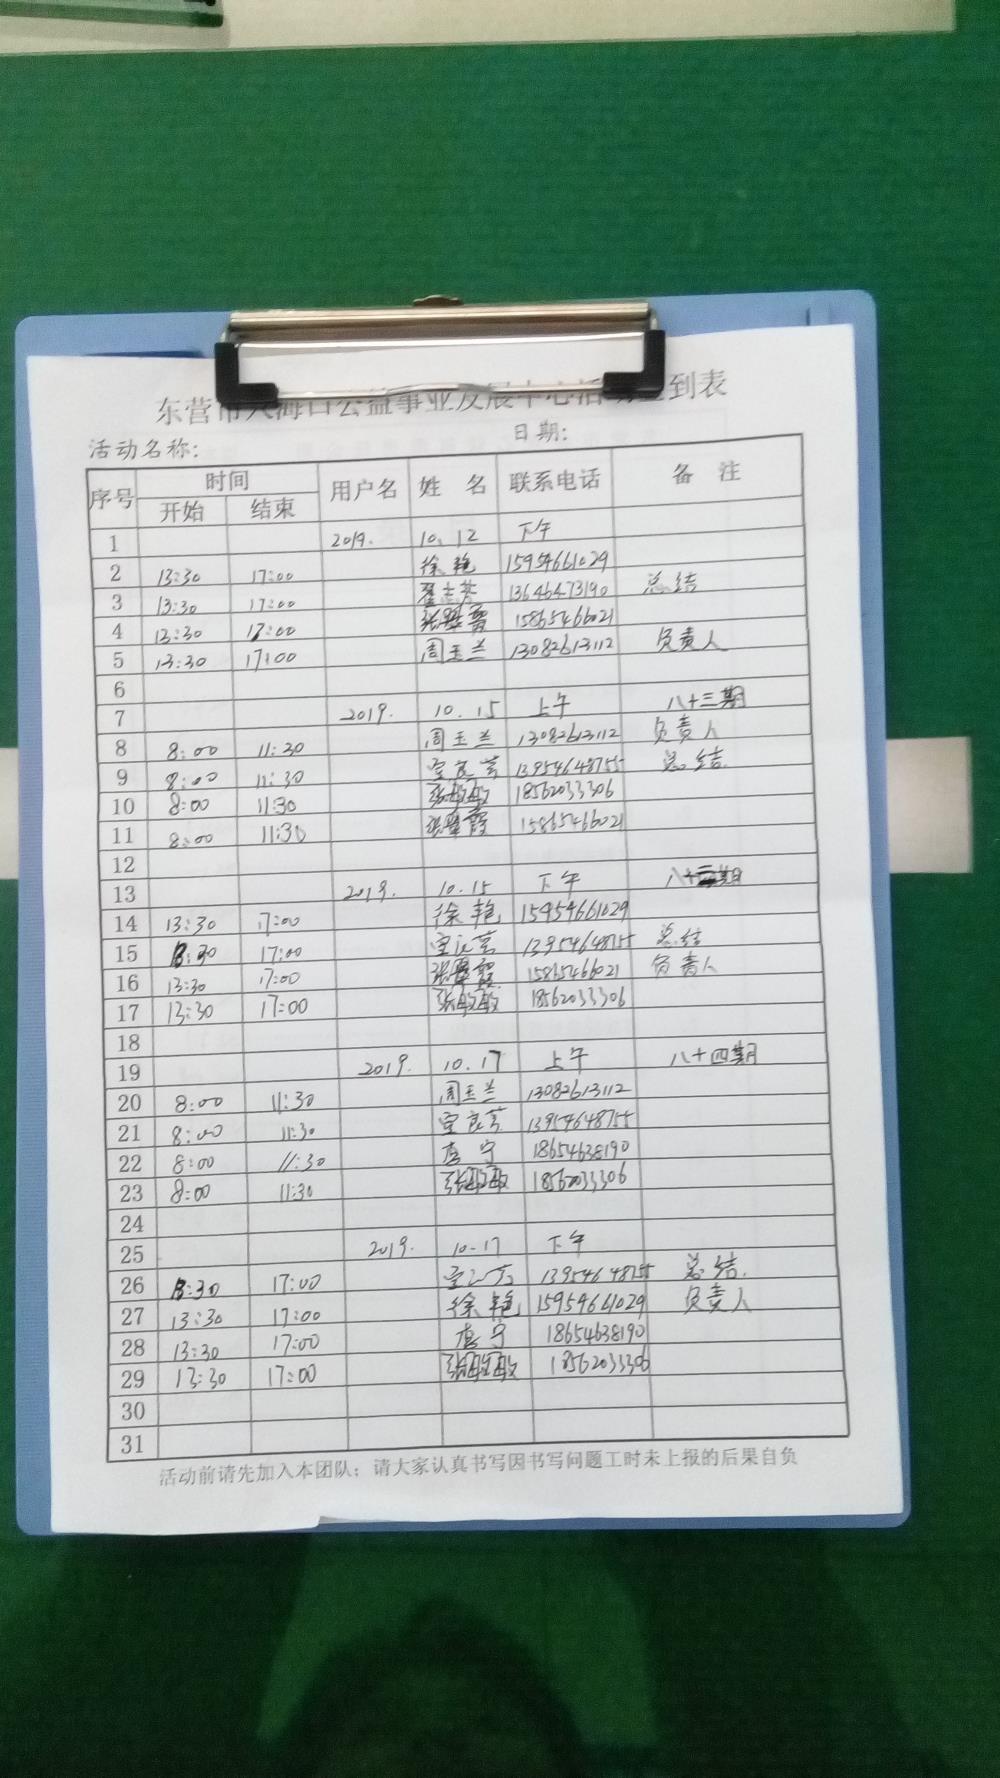 东营市大海口公益事业发展中心活动签到表
活动名称: 日期:
序号 时间 用户名 姓 名 联系电话 备 注
开始 结束
1 2019. 10.12 下午
2 13:30 17:00 徐艳 15954661029
3 13:30 17:00 13646473190 总结
4 13:30 17:00 15865466021
5 13:30 17:00 周玉兰 13082613112 负责人
6
7 2019. 10.15 上午 八十三期
8 8:00 11:30 周玉兰 13082613112 负责人
9 8:00 11:30 13954648755 总结
10 8:00 11:30 张敏敏 18562033306
11 8:00 11:30 15865466021
12
13 2019. 10.15 下午
14 13:30 17:00 徐艳 15954661029
15 13:30 17:00 13954648755 总结
16 13:30 17:00 15865466021 负责人
17 13:30 17:00 张敏敏 18562033306
18
19 2019. 10.17 上午 八十四期
20 8:00 11:30 周玉兰 13082613112
21 8:00 11:30 13954648755
22 8:00 11:30 18654638190
23 8:00 11:30 张敏敏 18562033306
24
25 2019. 10-17 下午
26 13:30 17:00 13954648755 总结.
27 13:30 17:00 徐艳 15954661029 负责人
28 13:30 17:00 18654638190
29 13:30 17:00 张敏敏 18562033306
30
31
活动前请先加入本团队；请大家认真书写因书写问题工时未上报的后果自负